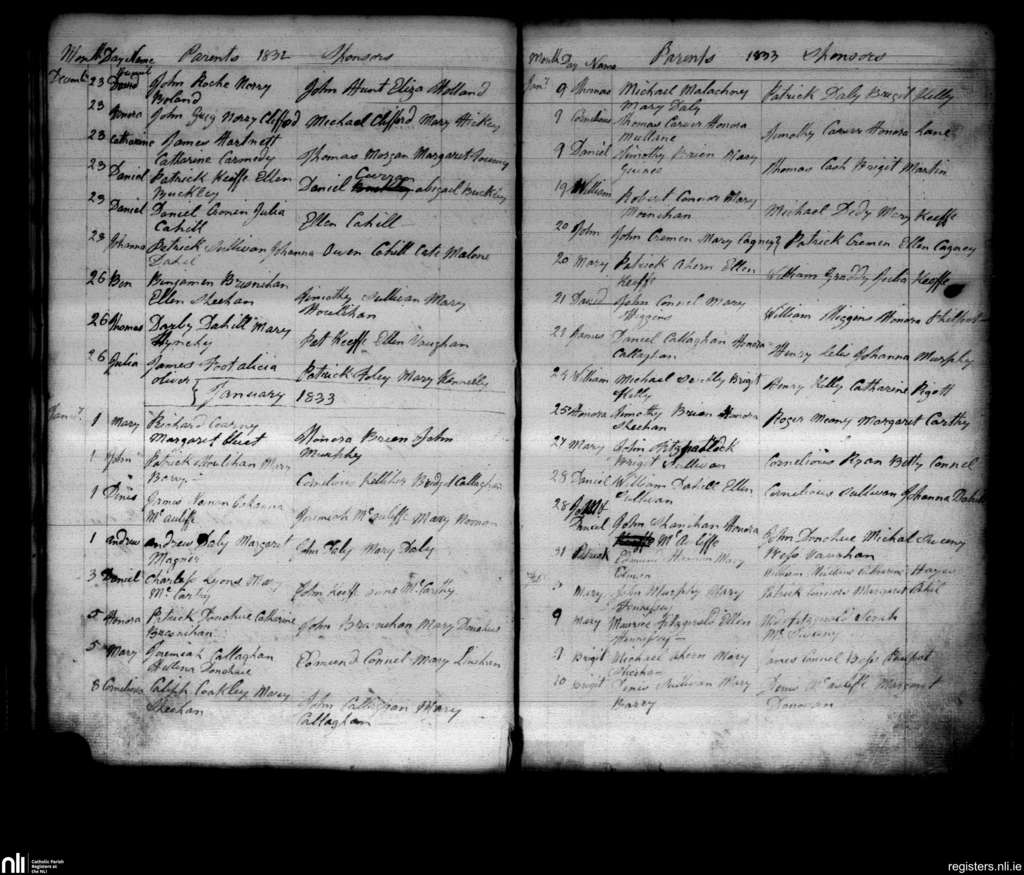 Month Day Name Parents 1832 Sponsors
Decemb. 23 David John Roche Norry John Hunt Eliza Holland
Boland
23 Honora John Greg Norry Clifford Michael Clifford Mary Hickey
23 Catharine James Hartnett
Catharine Carmody Thomas Morgan Margaret
23 Daniel Patrick Keeffe Ellen Daniel abigail Buckley
Buckley
23 Daniel Daniel Cronen Julia Ellen Cahill
Cahill
23 Johanna Patrick Sullivan Johanna Owen Cahill Cate Malone
Dahil
26 Ben Benjamen Brosnihan
Ellen Sheehan Timothy Sullivan Mary
Houlihan
26 Thomas Darby Dahill Mary Pat Keeffe Ellen Vaughan
Hynchy
26 Julia James Foot alicia Patrick Foley Mary Kennelly
oliver
January 1833
Jany. 1 Mary Richard Cearny
Margaret Honora Brien John
Murphy
1 John Patrick Houlihan Mary
Barry Cornelius Kelliher Bridget Callaghan
1 Dinis James Noonan Johanna
McAuliffe Jeremiah McAuliffe Mary Noonan
1 Andrew Andrew Daly Margaret John Daly Mary Daly
Magner
3 Daniel Charles Lyons Mary
McCarthy John Keeffe McCarthy
5 Honora Patrick Donohue Catharine John Brosnihan Mary Donohue
Brosnihan
5 Mary Jeremiah Callaghan Edmund Connel Mary Linehan
Hellena Donohue
8 Cornelious Coakley Mary
Sheehan John Callaghan Mary
Callaghan
Month Day Name Parents 1833 Sponsors
Jany. 9 Thomas Michael Malachney Patrick Daly Brigit Kelly
Mary Daly
9 Cornelious Thomas Carver Honora Timothy Carver Honora Lane
Mullane
9 Daniel Timothy Brien Mary Thomas Cash Brigit Martin
Guinee
19 William Robert Connors Mary Michael Dedy Mary Keeffe
Monihan
20 John John Cremen Mary Cagney Patrick Cremen Ellen Cagney
20 Mary Patrick Ahern Ellen William Grady Julia Keeffe
Keeffe
21 David John Connel Mary William Higgens Honora
Higgens
23 James Daniel Callaghan Honora Henry Lelis Johanna Murphy
Callaghan
24 William Michael Brigit Henry Kelly Catharine Pigott
Kelly
25 Honora Timothy Brien Honora Roger Meany Margaret Carthy
Sheehan
27 Mary John Fitzpatrick
Brigit Sullivan Cornelious Ryan Betty Connel
28 Daniel William Dahill Ellen Cornelious Sullivan Johanna Dahill
Sullivan
28
Daniel John Shanahan Honora
McAuliffe John Donohue Michal Sweeny
Bess Vaughan
31 Patrick Edmund Mary
Hayes
Mary John Murphy Mary Patrick Connors Margaret
Hennessey
9 Mary Maurice Fitzgerald Ellen Fitzgerald Sarah
Hennessey McSweeny
9 Brigit Michael Ahern Mary James Connel Bess
Sheehan
10 Brigit Denis Sullivan Mary Denis McAuliffe Margaret
Barry Donovan
nli Catholic Parish
Registers at
the NLI
registers.nli.ie